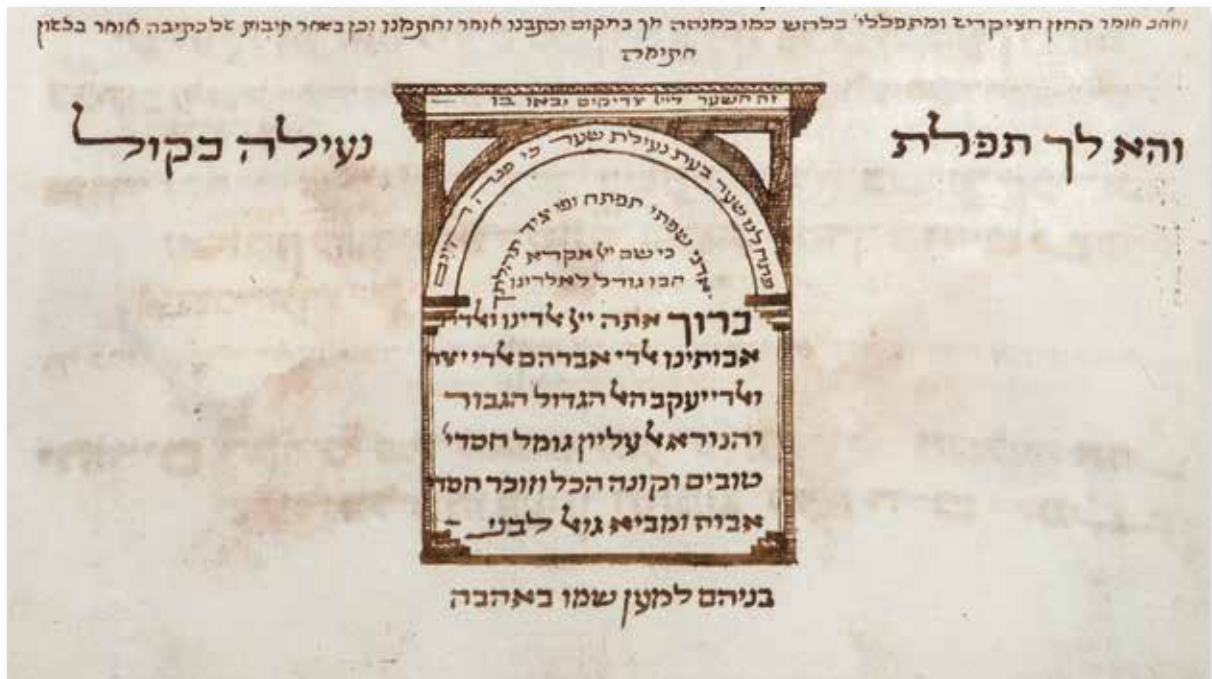 ואחב אומר החזן חצי קדיש ומתפללי׳ בלחש כמו במנחה אך במקום וכתבנו אומר וחתמנו וכן בשאר תיבות של כתיבה אומר בלשון
חתימה
והא לך תפלת נעילה בקול
זה השער לייי צדיקים יבאו בו
פתח לנו שער בעת נעילת שער כי פנה היום
אדני שפתי תפתח ופי יגיד תהלתך
כי שם ייי אקרא
הבו גודל לאלדינו
ברוך אתה ייי אלדינו ואלדי
אבותינו אלדי אברהם אלדי יצח
ואלדי יעקב האל הגדול הגבור
והנורא אל עליון גומל חסדי׳
טובים וקונה הכל וזוכר חסדי
אבות ומביא גואל לבני
בניהם למען שמו באהבה